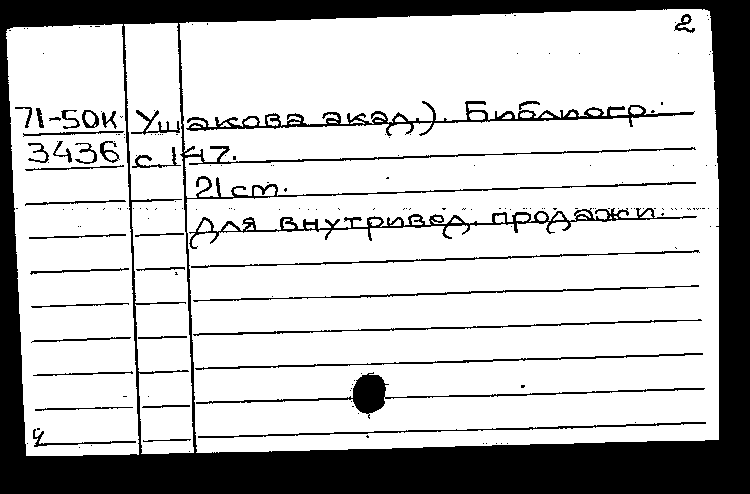 2
71-50К Ушакова акад.). Библиогр.:
3436 с. 147.
21 cm.
Для внутривед. продажи.